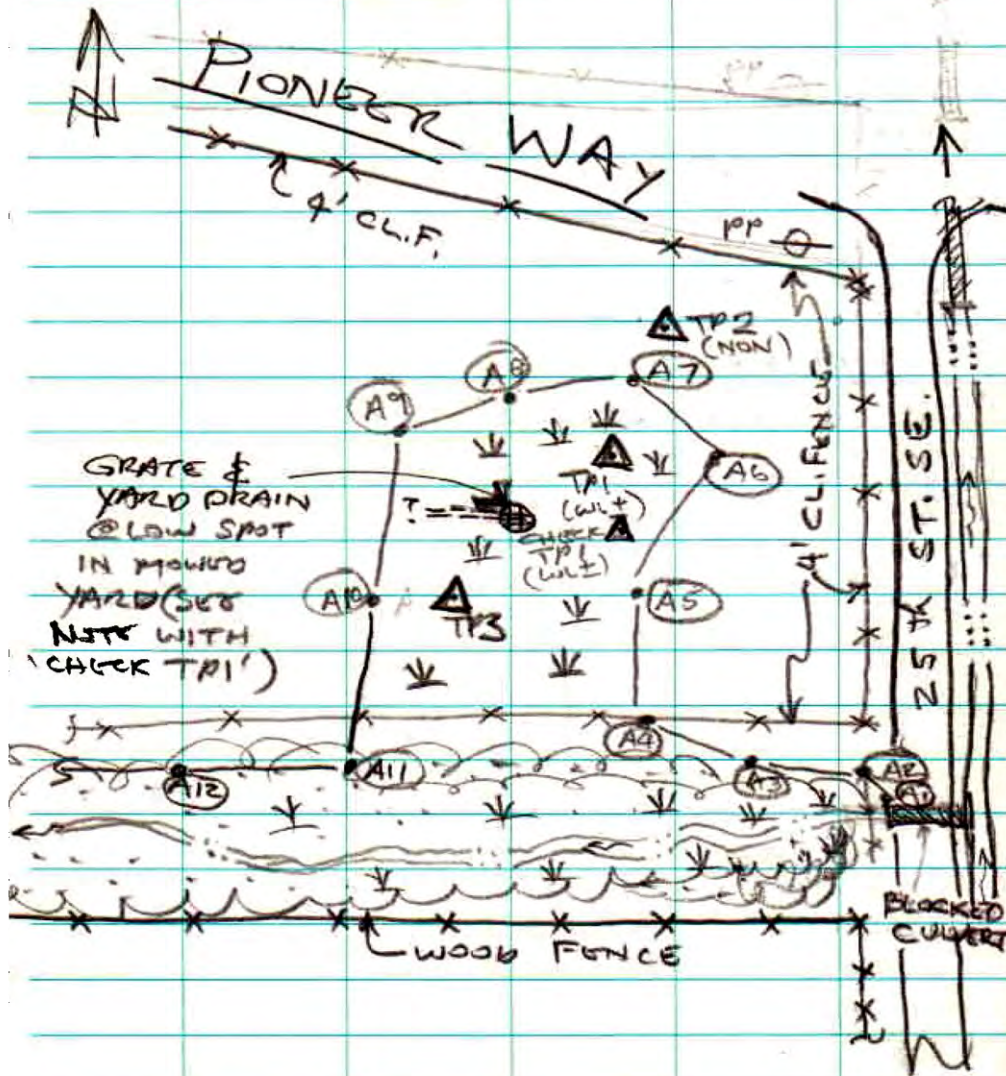 N
PIONEER WAY
4' CL.F.
PP
TP2
(NON)
A8
A7
A9
A6
GRATE &
YARD DRAIN
@ LOW SPOT
IN MOWED
YARD (SEE
NOTE WITH
'CHECK TP1')
?
TP1
(WL±)
CHECK
TP1
(WL±)
4' CL. FENCE
25TH ST. SE.
A10
TP3
A5
A4
A12
A11
A3
A2
A1
BLOCKED
CULVERT
WOOD FENCE